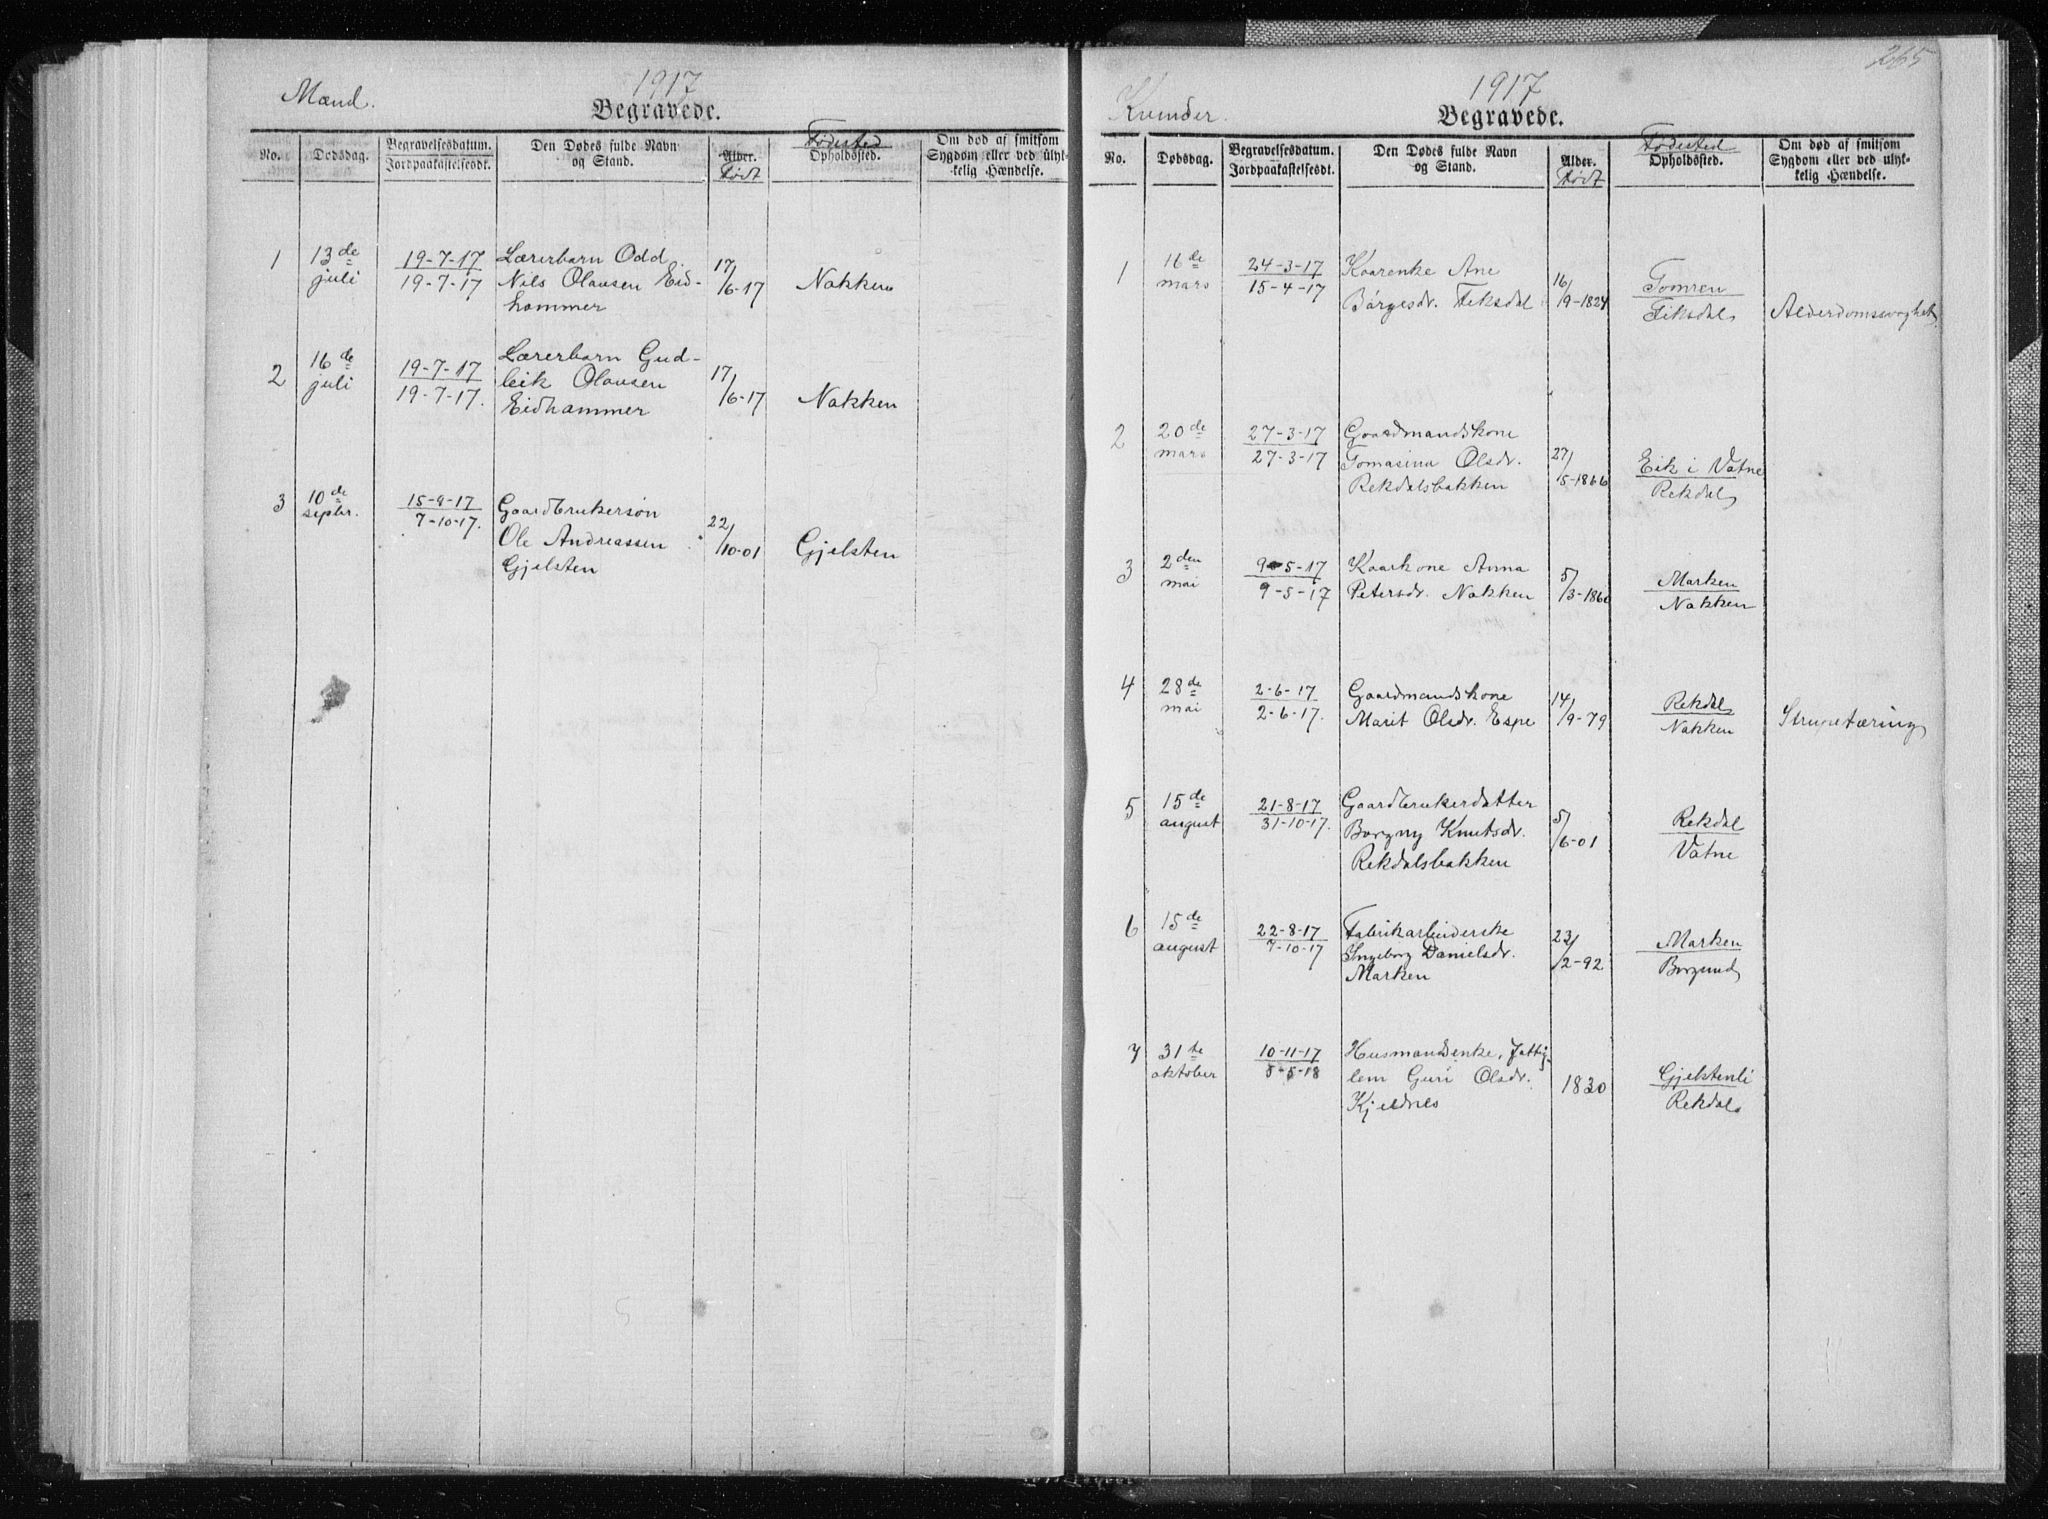 265
Mænd.
1917
Begravede.
No.
Dødsdag.
Begravelsesdatum.
Jordpaakastelsesdt.
Den Dødes fulde Navn
og Stand.
Alder.
Født
Fødested
Opholdssted.
Om død af smitsom
Sygdom eller ved ulyk-
kelig Hændelse.
1
13de
juli
19-7-17
19-7-17
Lærerbarn Odd
Nils Olausen Eid-
hammer
17/6-17
Nakken
2
16de
juli
19-7-17
19-7-17.
Lærerbarn Gud-
leik Olausen
Eidhammer
17/6-17
Nakken
3
10de
septbr.
15-9-17
7-10-17.
Gaardbrukersøn
Ole Andreassen
Gjelsten
22/10-01
Gjelsten
Kvinder.
1917
Begravede.
No.
Dødsdag.
Begravelsesdatum.
Jordpaakastelsesdt.
Den Dødes fulde Navn
og Stand.
Alder.
Født
Fødested
Opholdssted.
Om død af smitsom
Sygdom eller ved ulyk-
kelig Hændelse.
1
16de
mars
24-3-17
15-4-17
Kaarenke Ane
Børgesdr. Fiksdal
16/9-1824
Tomren
Fiksdal
Alderdomssvaghet
2
20de
mars
27-3-17
27-3-17
Gaardmandskone
Tomasina Olsdr.
Rekdalsbakken
27/5-1866
Eik i Vatne
Rekdal
3
2den
mai
9-5-17
9-5-17
Kaarkone Anna
Petersdr. Nakken
5/3-1860
Marken
Nakken
4
28de
mai
2-6-17
2-6-17.
Gaardmandskone
Marit Olsdr. Espe
14/9-79
Rekdal
Nakken
Strupetæring
5
15de
august
21-8-17
31-10-17.
Gaardbrukerdatter
Borgny Knutsdr.
Rekdalsbakken
5/6-01
Rekdal
Vatne
6
15de
august
22-8-17
7-10-17
Fabrikarbeiderske
Ingeborg Danielsdr.
Marken
23/2-92
Marken
Borgund
7
31te
oktober
10-11-17
5-5-18
Husmandsenke, Fattig-
lem Guri Olsdr.
Kjeldnes
1830
Gjelstenli
Rekdal